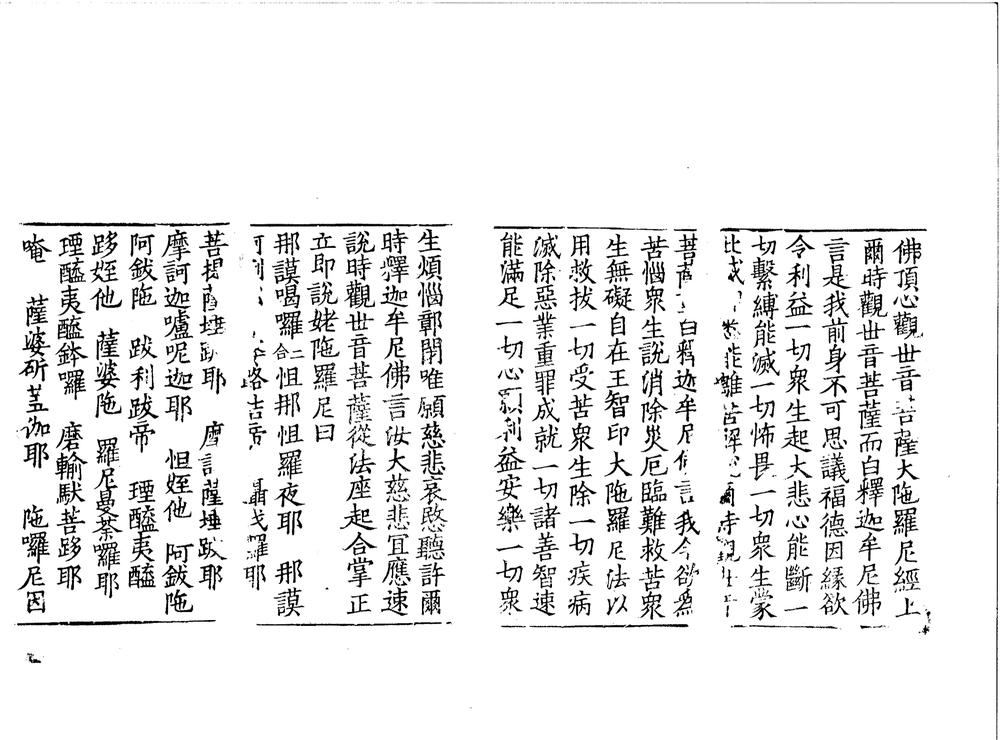 佛頂心觀世音菩薩大陁羅尼經上
爾時觀世音菩薩而白釋迦牟尼佛
言是我前身不可思議福德因緣欲
令利益一切衆生起大悲心能斷一
切繫縛能滅一切怖畏一切衆生蒙
能離苦
菩薩 白釋迦牟尼 言我今欲爲
苦惱衆生說消除災厄臨難救苦衆
生無礙自在王智印大陁羅尼法以
用救拔一切受苦衆生除一切疾病
滅除惡業重罪成就一切諸善智速
能滿足一切心願利益安樂一切衆
生煩惱鄣閉唯願慈悲哀愍聽許爾
時釋迦牟尼佛言汝大慈悲宜應速
說時觀世音菩薩從法座起合掌正
立即說姥陁羅尼曰
那謨喝囉二合怛那怛羅夜耶 那謨
路吉帝 羅耶
菩提薩埵跋耶 摩訶薩埵跋耶
摩訶迦嚧呢迦耶 怛姪他 阿鈸陁
阿鈸陁 跋利跋帝 堙醯夷醯
跢姪他 薩婆陁 羅尼曼荼囉耶
堙醯夷醯鉢囉 磨輸馱菩跢耶
唵 薩婆斫蒭伽耶 陁囉尼因